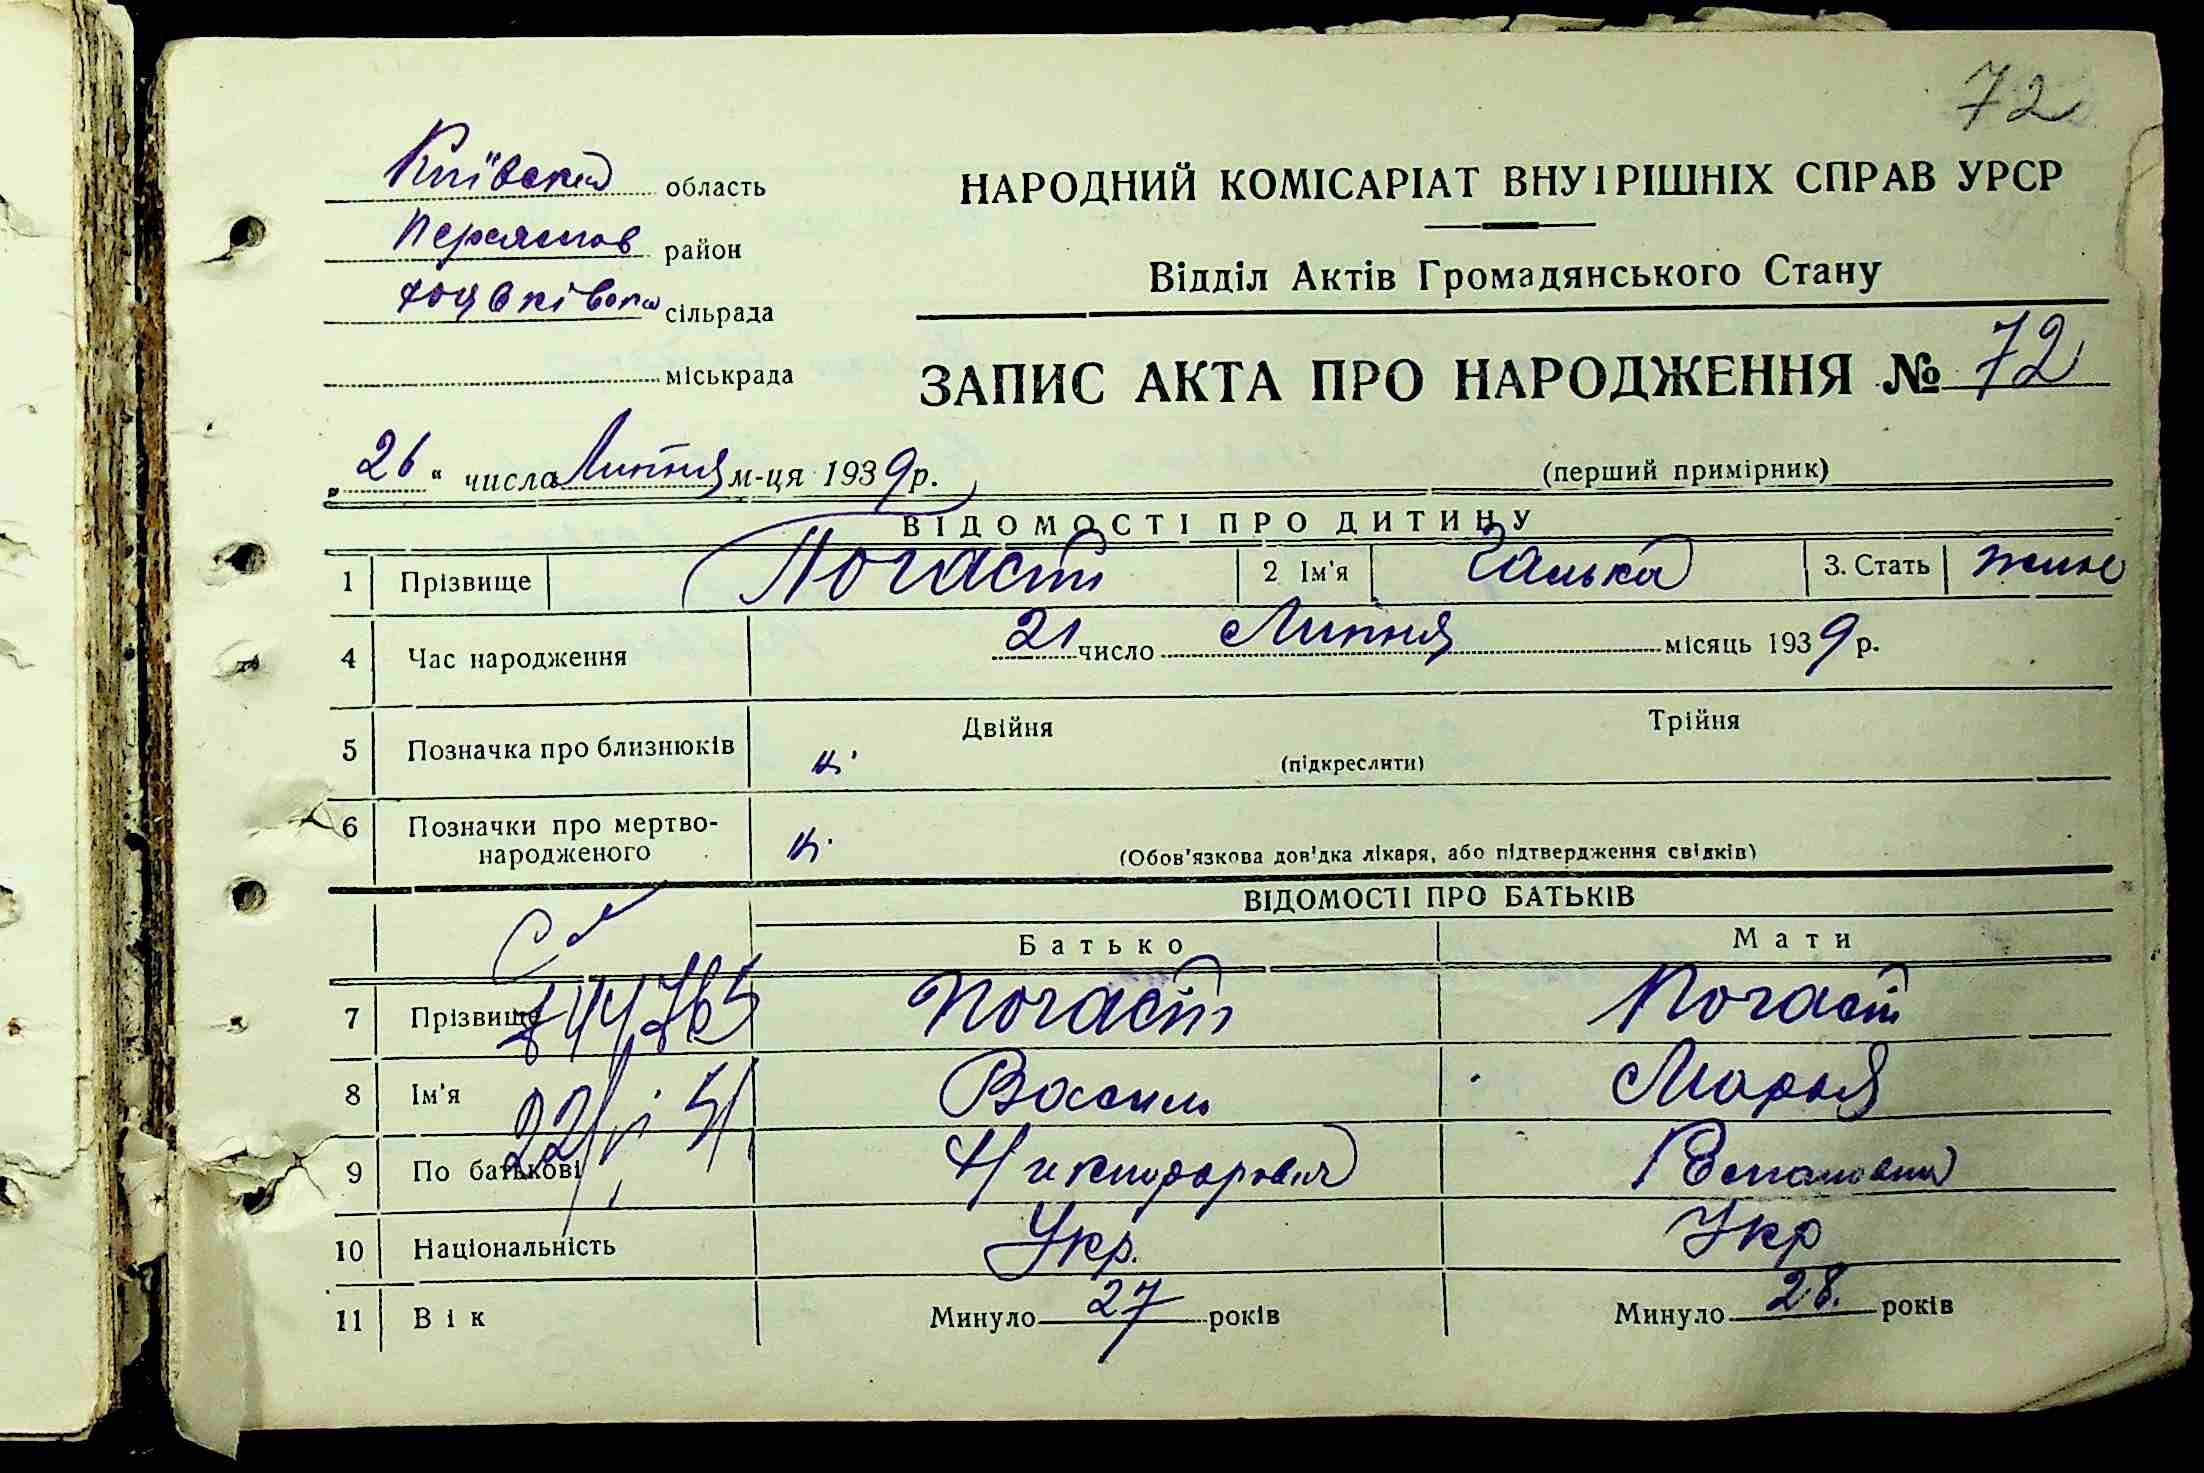 72
Київська область
НАРОДНИЙ КОМІСАРІАТ ВНУТРІШНІХ СПРАВ УРСР
Переяслов район
Відділ Актів Громадянського Стану
сільрада
міськрада
ЗАПИС АКТА ПРО НАРОДЖЕННЯ № 72
„26“ числа Липня м-ця 1939 р.
(перший примірник)
ВІДОМОСТІ ПРО ДИТИНУ
1 Прізвище Погаст 2 Ім'я Галька 3. Стать жіно
4 Час народження 21 число Липня місяць 1939 р.
5 Позначка про близнюків Двійня Трійня
(підкреслити)
6 Позначки про мертво-
народженого (Обов'язкова дов'дка лікаря, або підтвердження свідків)
ВІДОМОСТІ ПРО БАТЬКІВ
Батько Мати
7 Прізвище Погаст Погаст
8 Ім'я Василь Марья
9 По батькові Никифорович
10 Національність Укр. Укр
11 Вік Минуло 27 років Минуло 28. років